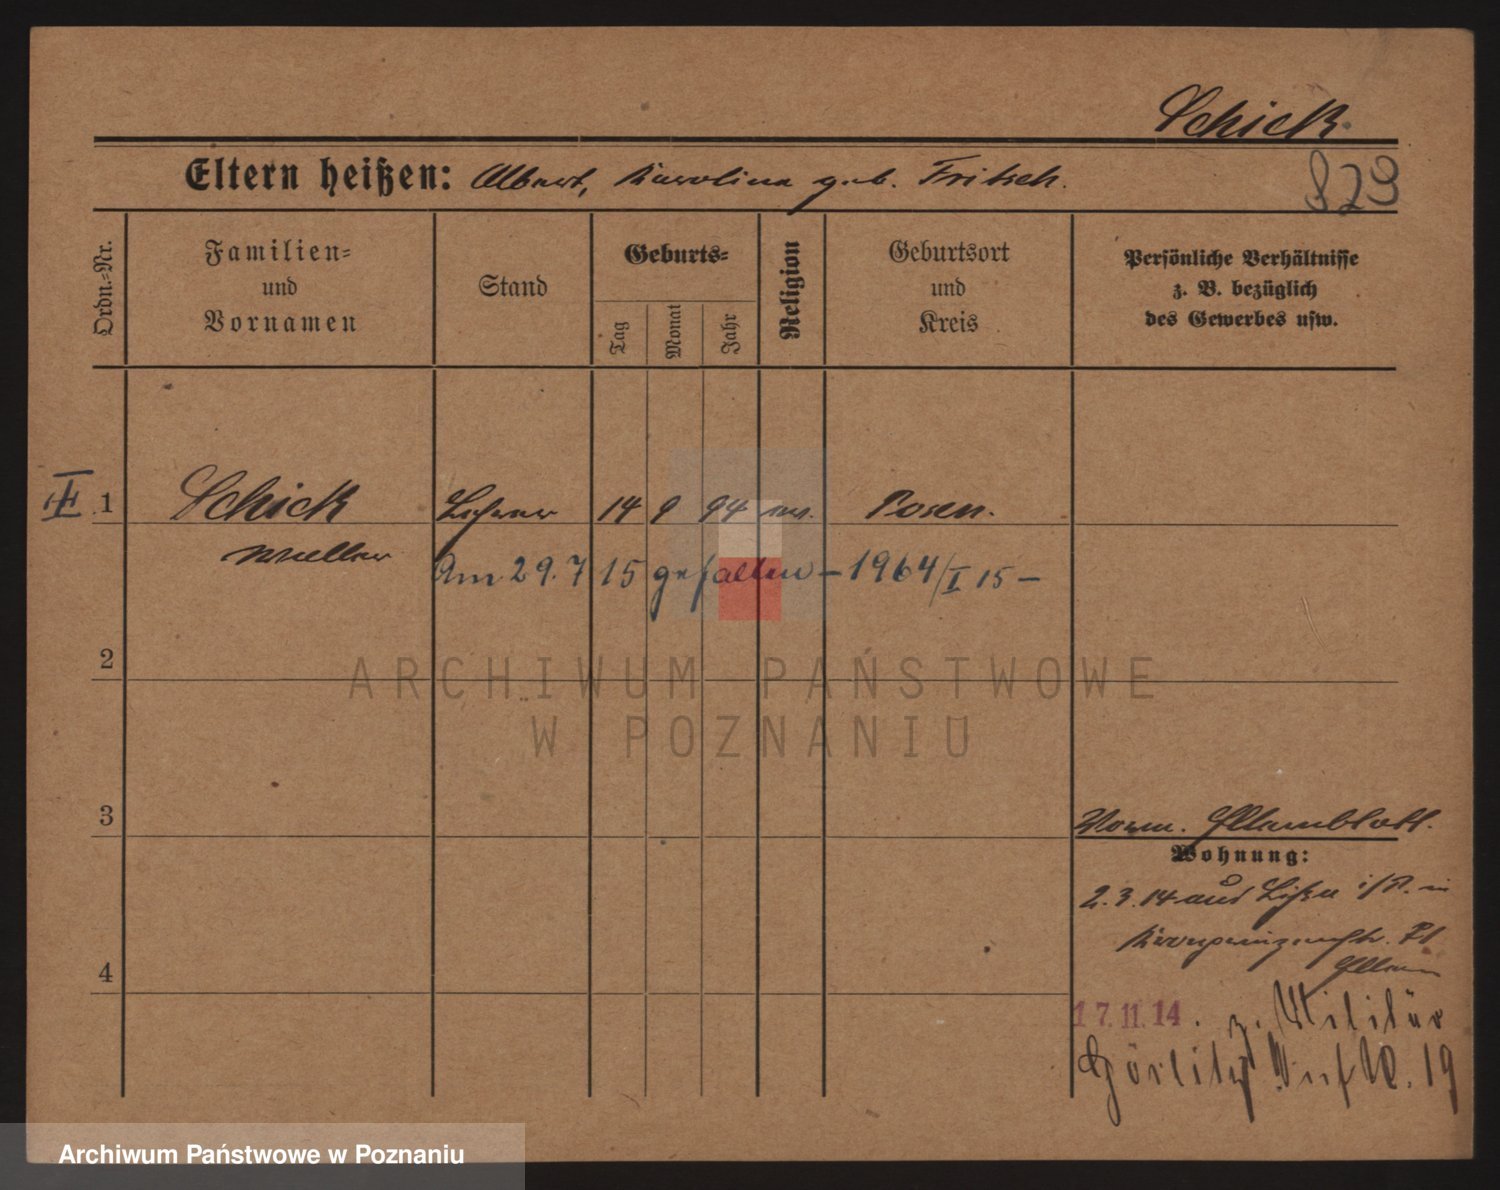 Schick.
Eltern heißen: Albert, Karolina geb. Fritsch.
829
Ordn.-Nr.
Familien- und Vornamen
Stand
Geburts-
Tag
Monat
Jahr
Religion
Geburtsort und Kreis
Persönliche Verhältnisse z. B. bezüglich des Gewerbes usw.
1 Schick Lehrer 14 9 94 Posen.
Am 29.7 15 gefallen – 1964/I 15 –
2
3
Elternblatt.
Wohnung:
2.3.14 aus Lissa i/P. in
Kronprinzenstr.
Eltern
4
17.11.14. z. Militär
Görlitz Inf R. 19
ARCHIWUM PAŃSTWOWE
W POZNANIU
Archiwum Państwowe w Poznaniu